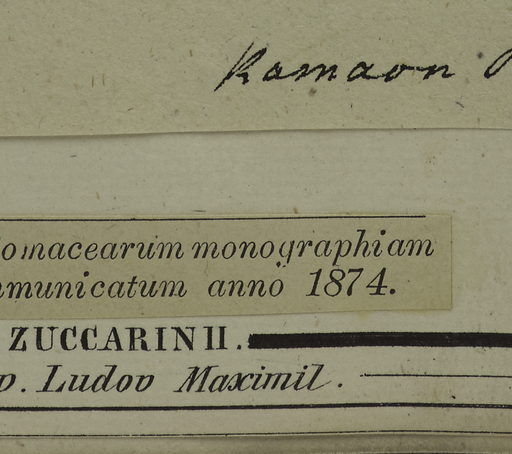 Kamaon
omacearum monographiam
mmunicatum anno 1874.
ZUCCARINII.
p. Ludov Maximil.